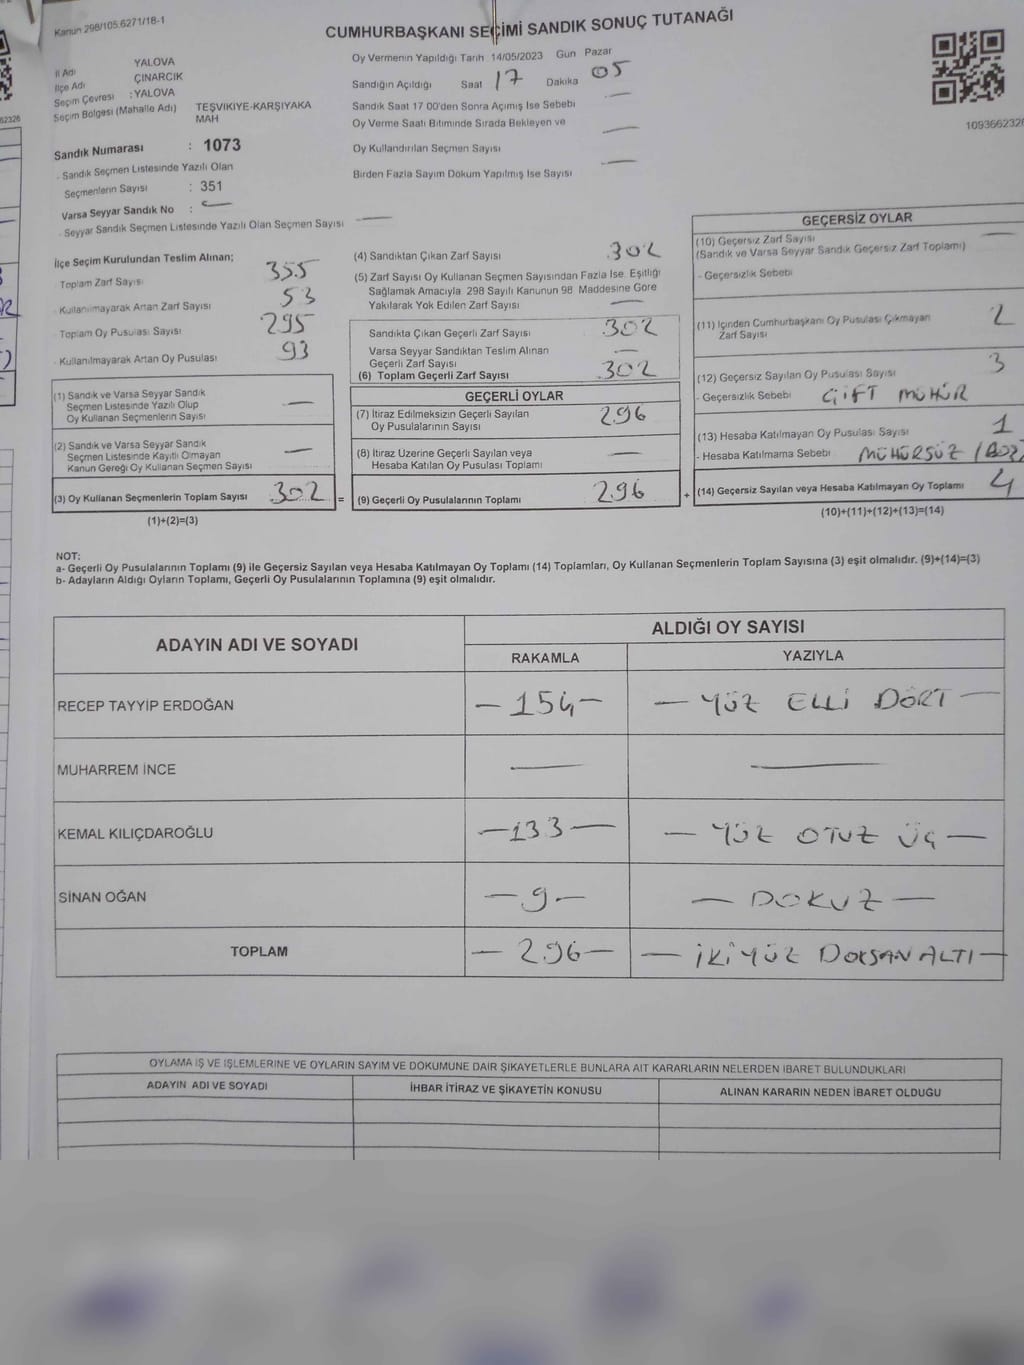 Kanun 298/105.6271/18-1
CUMHURBAŞKANI SEÇİMİ SANDIK SONUÇ TUTANAĞI
İl Adı YALOVA
İlçe Adı ÇINARCIK
Seçim Çevresi : YALOVA
Seçim Bölgesi (Mahalle Adı) TEŞVİKİYE-KARŞIYAKA
MAH
Sandık Numarası : 1073
- Sandık Seçmen Listesinde Yazılı Olan
Seçmenlerin Sayısı : 351
Varsa Seyyar Sandık No :
- Seyyar Sandık Seçmen Listesinde Yazılı Olan Seçmen Sayısı
Oy Vermenin Yapıldığı Tarih 14/05/2023 Gün Pazar
Sandığın Açıldığı Saat 17 Dakika 05
Sandık Saat 17 00'den Sonra Açımış Ise Sebebi
Oy Verme Saati Bitiminde Sırada Bekleyen ve
Oy Kullandırılan Seçmen Sayısı
Birden Fazla Sayım Döküm Yapılmış Ise Sayısı
1093662326
62326
İlçe Seçim Kurulundan Teslim Alınan;
Toplam Zarf Sayısı 355
- Kullanılmayarak Artan Zarf Sayısı 53
- Toplam Oy Pusulası Sayısı 295
- Kullanılmayarak Artan Oy Pusulası 93
(1) Sandık ve Varsa Seyyar Sandık
Seçmen Listesinde Yazılı Olup
Oy Kullanan Seçmenlerin Sayısı
(2) Sandık ve Varsa Seyyar Sandık
Seçmen Listesinde Kayıtlı Olmayan
Kanun Gereği Oy Kullanan Seçmen Sayısı
(3) Oy Kullanan Seçmenlerin Toplam Sayısı 302 =
(1)+(2)=(3)
(4) Sandıktan Çıkan Zarf Sayısı 302
(5) Zarf Sayısı Oy Kullanan Seçmen Sayısından Fazla Ise. Eşitliği
Sağlamak Amacıyla 298 Sayılı Kanunun 98 Maddesine Göre
Yakılarak Yok Edilen Zarf Sayısı
Sandıkta Çıkan Geçerli Zarf Sayısı 302
Varsa Seyyar Sandıktan Teslim Alınan
Geçerli Zarf Sayısı
(6) Toplam Geçerli Zarf Sayısı 302
GEÇERLİ OYLAR
(7) İtiraz Edilmeksizin Geçerli Sayılan
Oy Pusulalarının Sayısı 296
(8) İtiraz Üzerine Geçerli Sayılan veya
Hesaba Katılan Oy Pusulası Toplamı
(9) Geçerli Oy Pusulalarının Toplamı 296 +
GEÇERSİZ OYLAR
(10) Geçersiz Zarf Sayısı
(Sandık ve Varsa Seyyar Sandık Geçersiz Zarf Toplamı)
- Geçersizlik Sebebi
(11) İçinden Cumhurbaşkanı Oy Pusulası Çıkmayan
Zarf Sayısı 2
(12) Geçersiz Sayılan Oy Pusulası Sayısı 3
- Geçersizlik Sebebi ÇİFT MÜHÜR
(13) Hesaba Katılmayan Oy Pusulası Sayısı 1
- Hesaba Katılmama Sebebi MÜHÜRSÜZ
(14) Geçersiz Sayılan veya Hesaba Katılmayan Oy Toplamı 4
(10)+(11)+(12)+(13)=(14)
NOT:
a- Geçerli Oy Pusulalarının Toplamı (9) ile Geçersiz Sayılan veya Hesaba Katılmayan Oy Toplamı (14) Toplamları, Oy Kullanan Seçmenlerin Toplam Sayısına (3) eşit olmalıdır. (9)+(14)=(3)
b- Adayların Aldığı Oyların Toplamı, Geçerli Oy Pusulalarının Toplamına (9) eşit olmalıdır.
ADAYIN ADI VE SOYADI
ALDIĞI OY SAYISI
RAKAMLA YAZIYLA
RECEP TAYYİP ERDOĞAN - 154 - - YÜZ ELLİ DÖRT -
MUHARREM İNCE
KEMAL KILIÇDAROĞLU - 133 - - YÜZ OTUZ ÜÇ -
SİNAN OĞAN - 9 - - DOKUZ -
TOPLAM - 296 - - İKİ YÜZ DOKSAN ALTI -
OYLAMA İŞ VE İŞLEMLERİNE VE OYLARIN SAYIM VE DÖKÜMÜNE DAİR ŞİKAYETLERLE BUNLARA AİT KARARLARIN NELERDEN İBARET BULUNDUKLARI
ADAYIN ADI VE SOYADI İHBAR İTİRAZ VE ŞİKAYETİN KONUSU ALINAN KARARIN NEDEN İBARET OLDUĞU